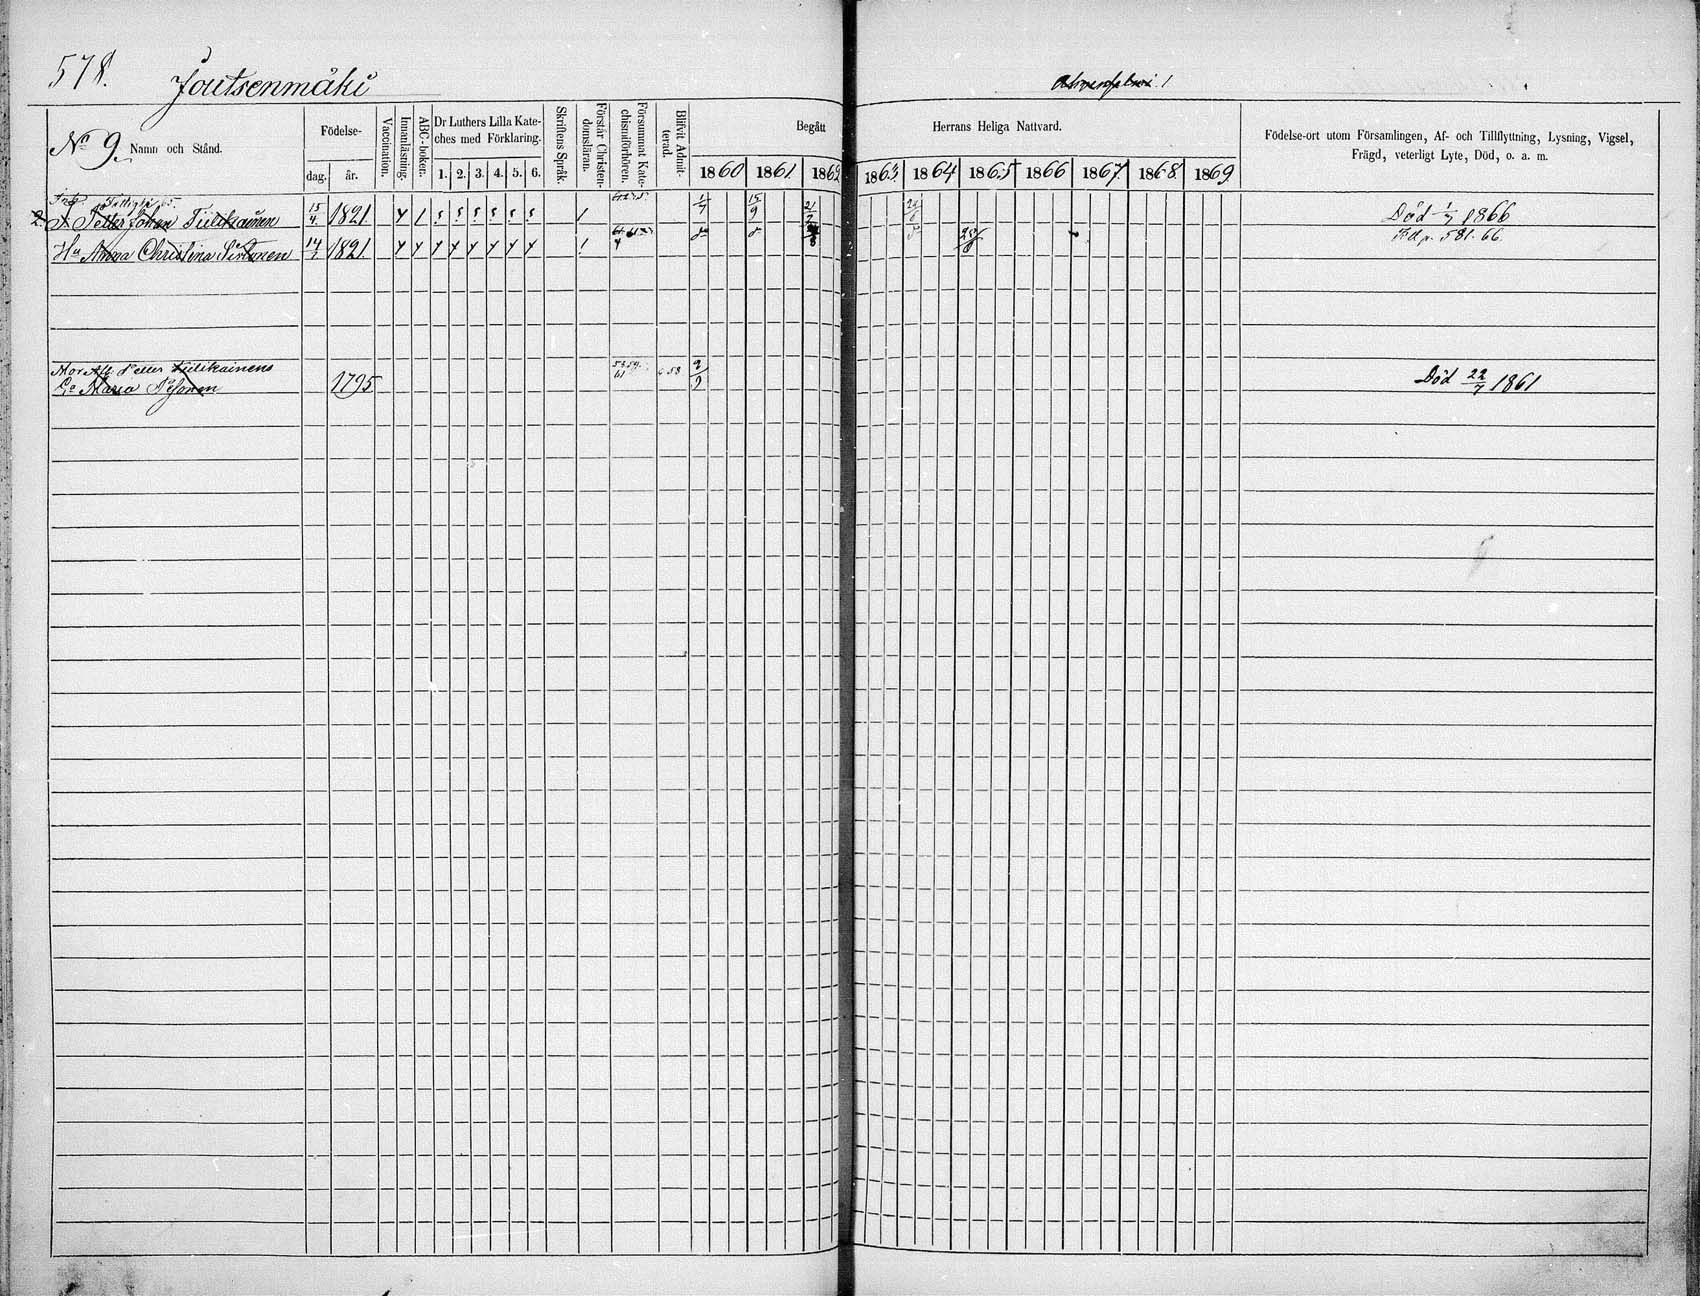 578.
Joutsenmäki
No 9.
Namn och Stånd.
Födelse-
dag.
år.
Vaccination.
Innanläsning.
ABC-boken.
Dr Luthers Lilla Kate-
ches med Förklaring.
1. 2. 3. 4. 5. 6.
Skriftens Språk.
Förstår Christen-
domsläran.
Försummat Kate-
chismiförhören.
Blifvit Admit-
terad.
Begått
Herrans Heliga Nattvard.
1860 1861 1862 1863 1864 1865 1866 1867 1868 1869
Födelse-ort utom Församlingen, Af- och Tillflyttning, Lysning, Vigsel,
Frägd, veterligt Lyte, Död, o. a. m.
Petter Johan Tiilikainen 15/4. 1821. 1/7 15/9 Död 1/7 1866
Hu Anna Christina 14/7 1821. 581. 66.
Petter Tiilikainens
Maria 1795 58 Död 22/7 1861